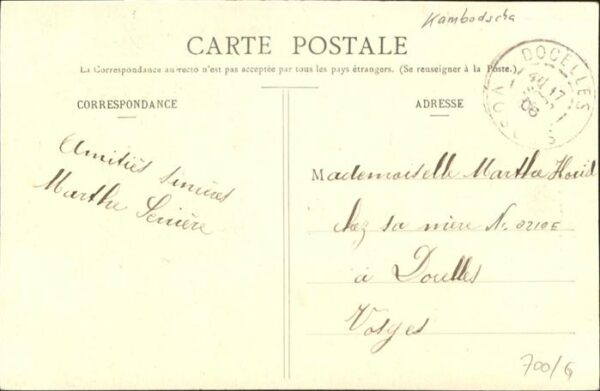 Kambodscha
CARTE POSTALE
La Correspondance au recto n'est pas acceptée par tous les pays étrangers. (Se renseigner à la Poste.)
CORRESPONDANCE
Amitiés sincères
Marthe
ADRESSE
DOCELLES
17
06
VOSGES
Mademoiselle Marthe
chez sa mère
à Docelles
Vosges
700/G